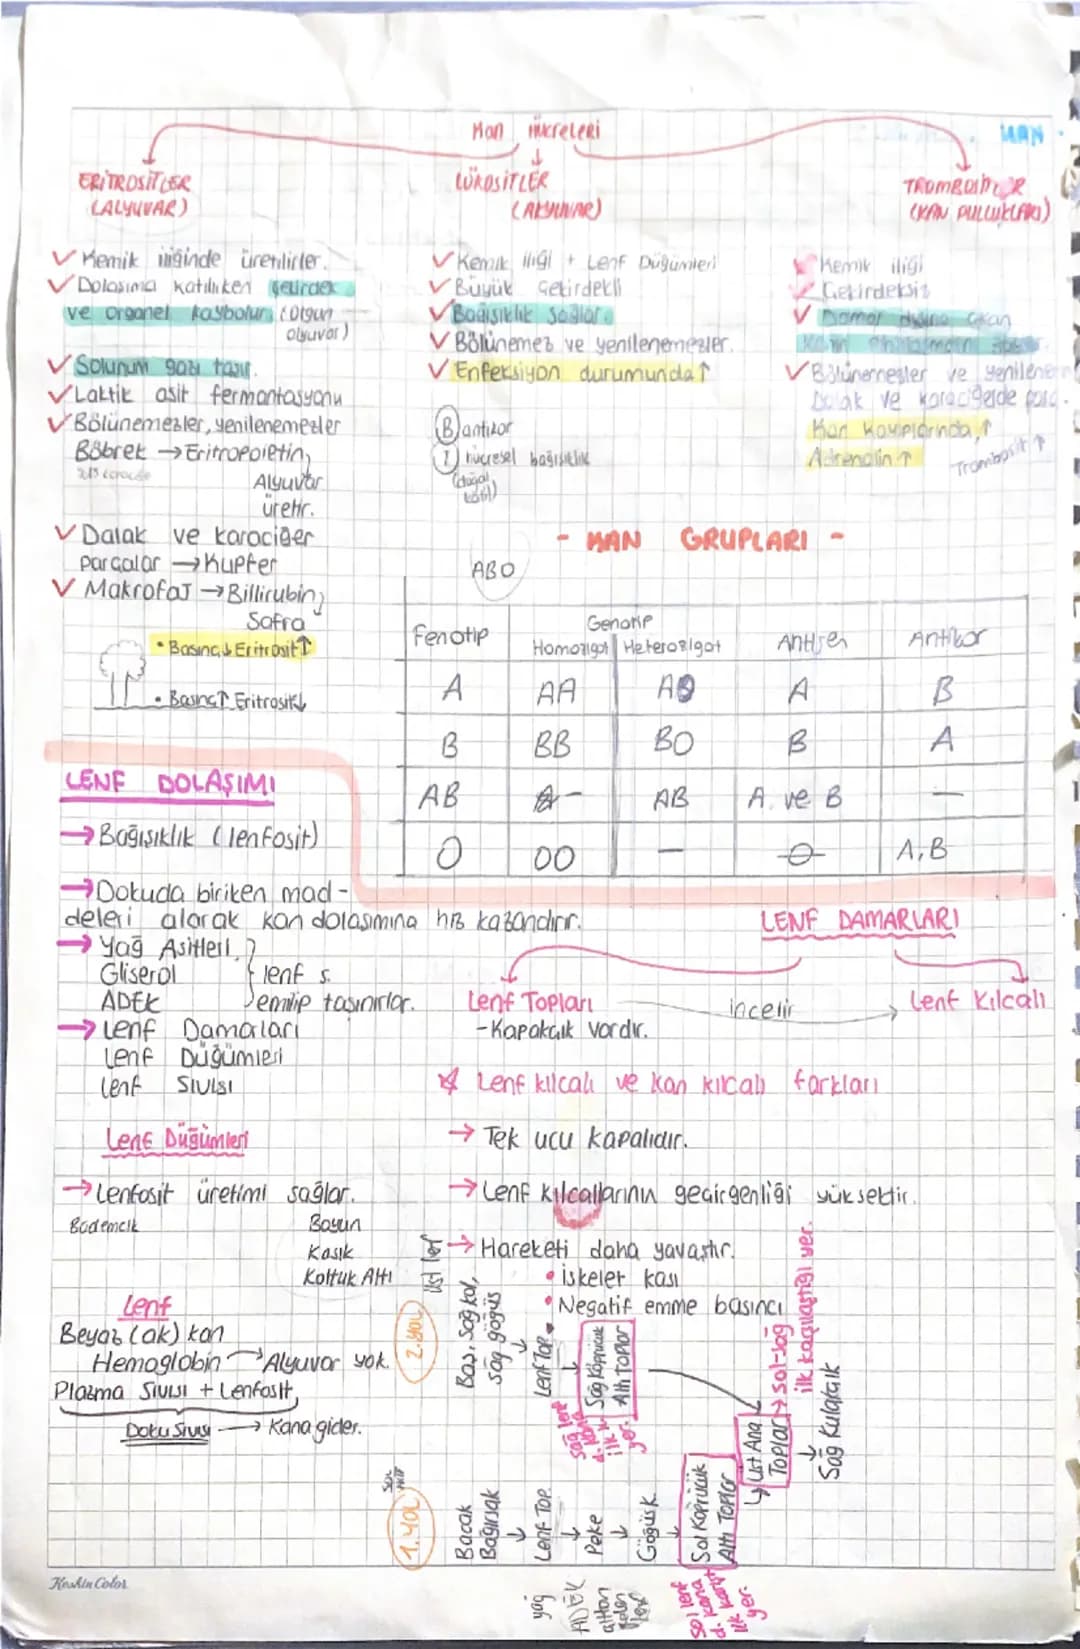 KAN
Kan Hücreleri
ERİTROSİTLER
(ALYUVAR)
✓ Kemik iliğinde üretilirler.
✓ Dolaşıma katılırken çekirdek
ve organel kaybolur. (Olgun
alyuvar)
✓ Solunum gazı taşır.
✓ Laktik asit fermantasyonu
✓ Bölünemezler, yenilenemezler
Böbrek → Eritropoietin,
Alyuvar
üretir.
✓ Dalak ve karaciğer
parçalar → Kupfer
✓ Makrofaj → Billirubin,
Safra
• Basınç↓ Eritrosit↑
• Basınç↑ Eritrosit↓
LÖKOSİTLER
(AKYUVAR)
✓ Kemik iliği + Lenf Düğümleri
✓ Büyük Çekirdekli
✓ Bağışıklık Sağlar.
✓ Bölünemez ve yenilenemezler.
✓ Enfeksiyon durumunda ↑
(B) antikor
hücresel bağışıklık
(doğal
katil)
TROMBOSİTLER
(KAN PULCUKLARI)
Kemik iliği
Çekirdeksiz
✓ Damar dışına çıkan
✓ Bölünemezler ve yenilenem
Dalak ve karaciğerde parç.
Kan Kayıplarında ↑
Adrenalin ↑
Trombosit ↑
- KAN GRUPLARI -
ABO
Fenotip
Genotip
Homozigot Heterozigot
Antijen
Antikor
A AA AO A B
B BB BO B A
AB - AB A ve B —
O OO — A, B
LENF DOLAŞIMI
→ Bağışıklık (lenfosit)
→ Dokuda biriken mad-
deleri alarak kan dolaşımına kazandırır.
→ Yağ Asitleri
Gliserol } lenf s.
ADEK emilip taşınırlar.
→ Lenf Damarları
Lenf Düğümleri
Lenf Sıvısı
Lenf Düğümleri
→ Lenfosit üretimi sağlar.
Bademcik Boyun
Kasık
Koltuk Altı
Lenf
Beyaz (ak) kan
Hemoglobin → Alyuvar yok.
Plazma Sıvısı + Lenfosit,
Doku Sıvısı → Kana gider.
LENF DAMARLARI
Lenf Topları
-Kapakçık vardır.
incelir →
Lenf Kılcalı
Lenf kılcalı ve kan kılcalı farkları
→ Tek ucu kapalıdır.
→ Lenf kılcallarının geçirgenliği yüksektir.
→ Hareketi daha yavaştır.
• İskelet kası
• Negatif emme basıncı
2. YOL
Baş, Sağ kol,
Sağ göğüs
↓
Lenf Top.
↓
Sağ Köprücük
Altı Toplar
Sağ lenf
d. kana
ilk k.
yer.
Üst Ana
Toplar → Sol-sağ
ilk karşılaştığı yer.
↓
Sağ Kulakçık
1. YOL
Bacak
Bağırsak
↓
Lenf Top.
↓
Peke
↓
Göğüs K.
↓
Sol Köprücük
Altı Toplar
yağ
ADEK
Sol lenf
d. kana
ilk karışt
yer.
Keskin Color